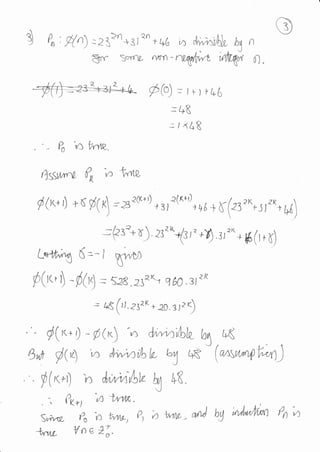 3
3) Pₙ: ∅(n) = 23²ⁿ + 31²ⁿ + 46 is divisible by n
for some non-negative integer n.
∅(1) = 23² + 31² + 4 ∅(0) = 1 + 1 + 46
= 48
= 1 × 48
∴ P₀ is true.
Assume Pₖ is true
∅(K+1) + γ∅(K) = 23²⁽ᴷ⁺¹⁾ + 31²⁽ᴷ⁺¹⁾ + 46 + γ(23²ᴷ + 31²ᴷ + 46)
= (23² + γ).23²ᴷ + (31² + γ).31²ᴷ + 46(1+γ)
Letting γ = -1 gives
∅(K+1) - ∅(K) = 528.23²ᴷ + 960.31²ᴷ
= 48(11.23²ᴷ + 20.31²ᴷ)
∴ ∅(K+1) - ∅(K) is divisible by 48
But ∅(K) is divisible by 48 (assumption)
∴ ∅(K+1) is divisible by 48.
∴ Pₖ₊₁ is true.
Since P₀ is true, P₁ is true and by induction Pₙ is
true ∀n ∈ ℤ₀⁺.